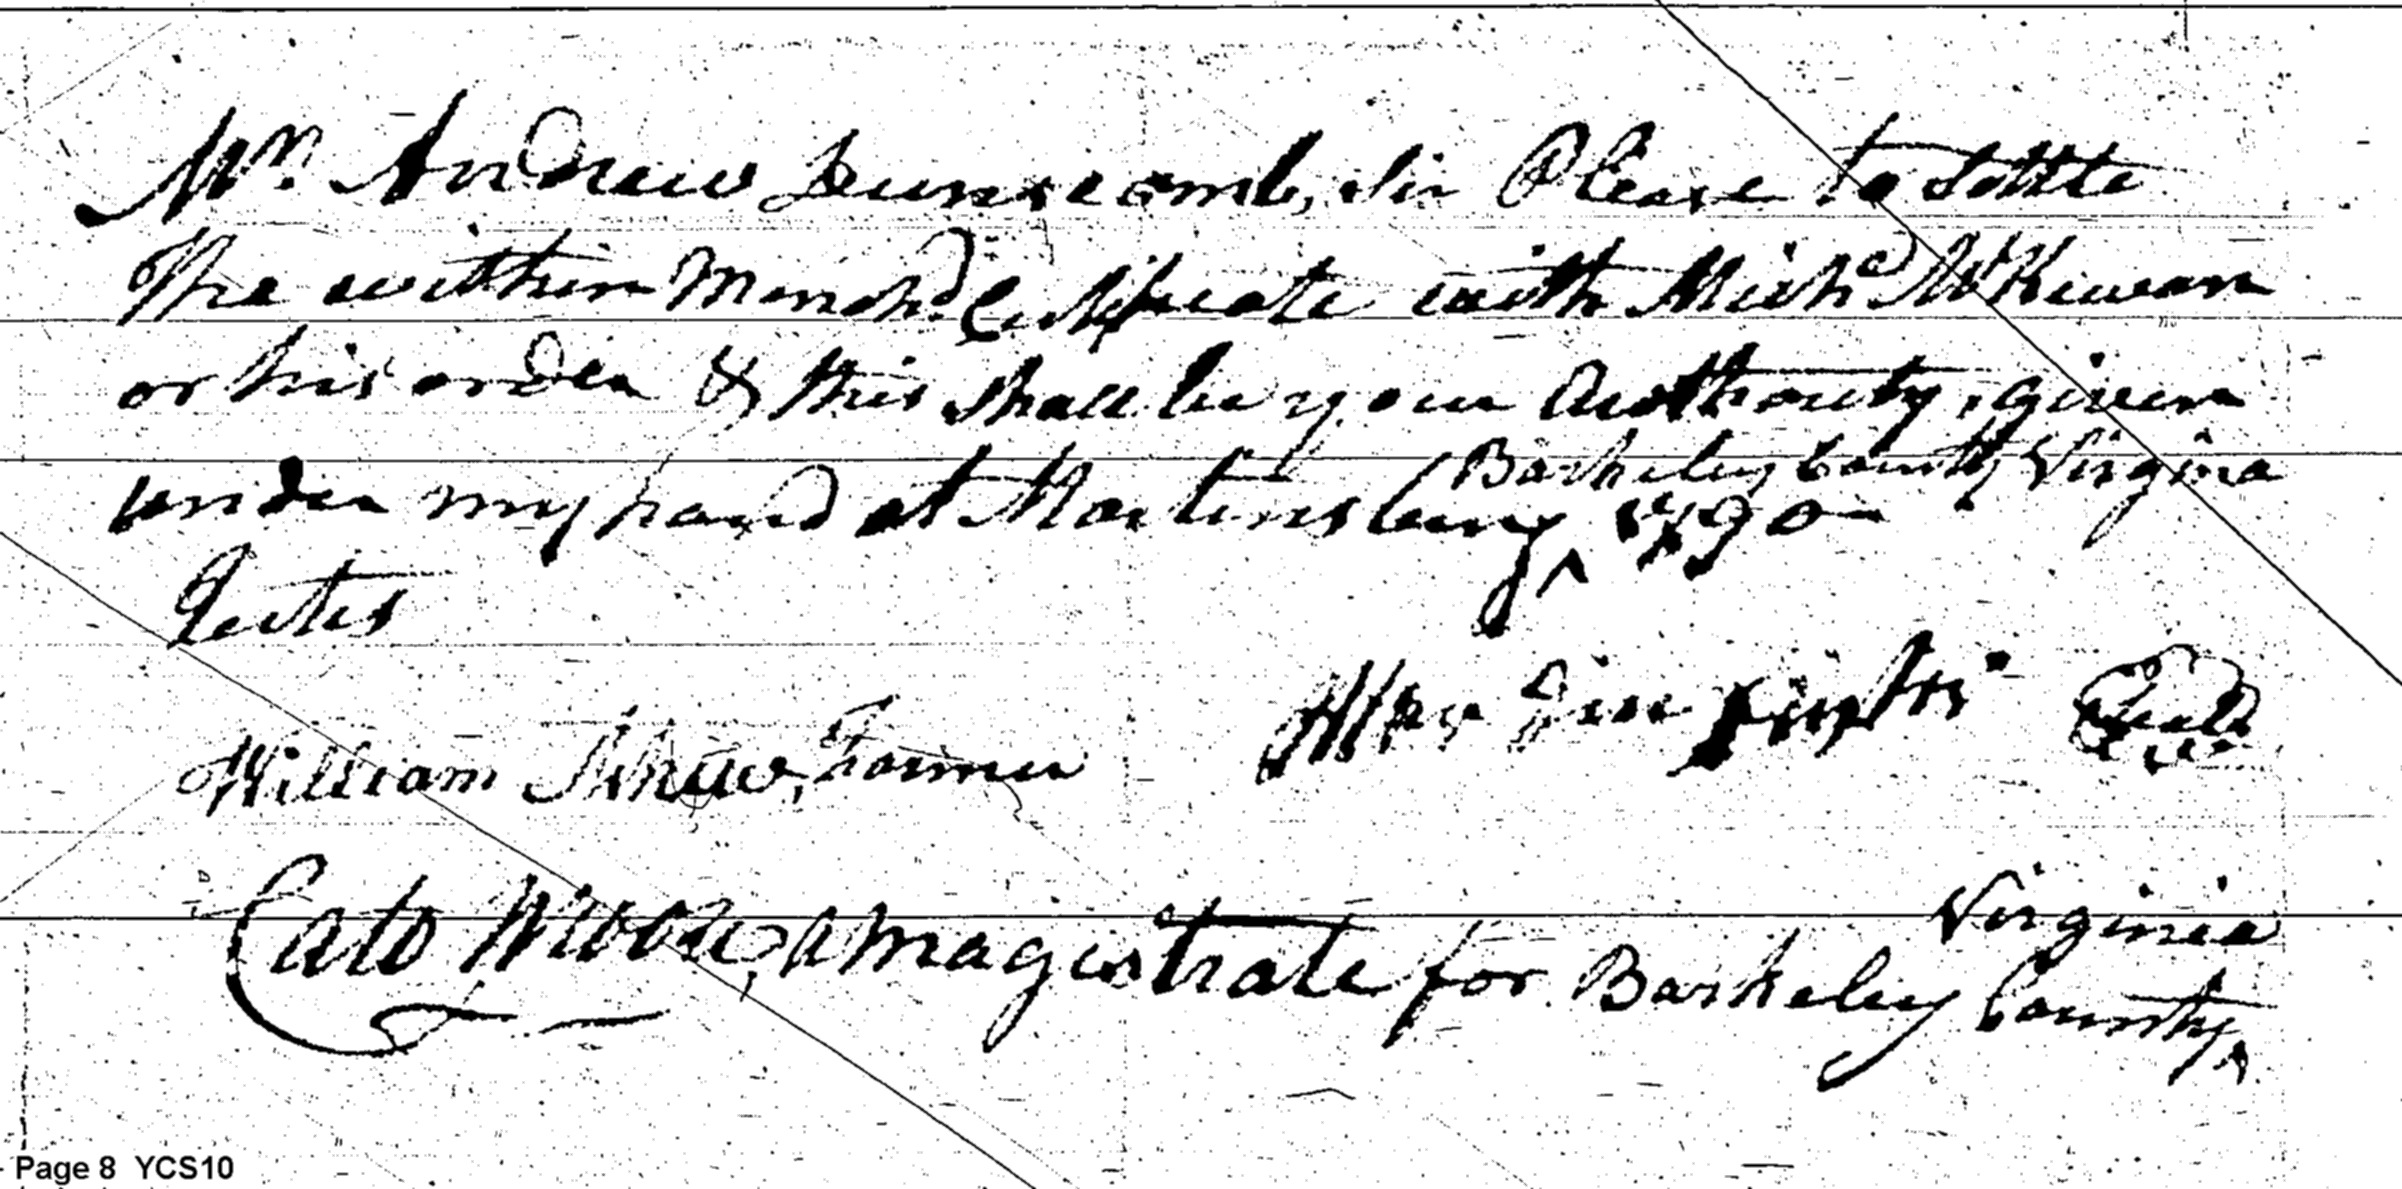 Mr. Andrew Dunscomb, Sir Please to Settle
The within Mentnd. Certificate with Michl McKewan
or his order & this shall be your Authourity, given
under my hand at Martinsburg ^ Barkeley County Virginia 1790
Testes
William Shaw, Farmer Seal
Cato Moore, a magistrate for Barkeley County ^ Virginia
Page 8 YCS10